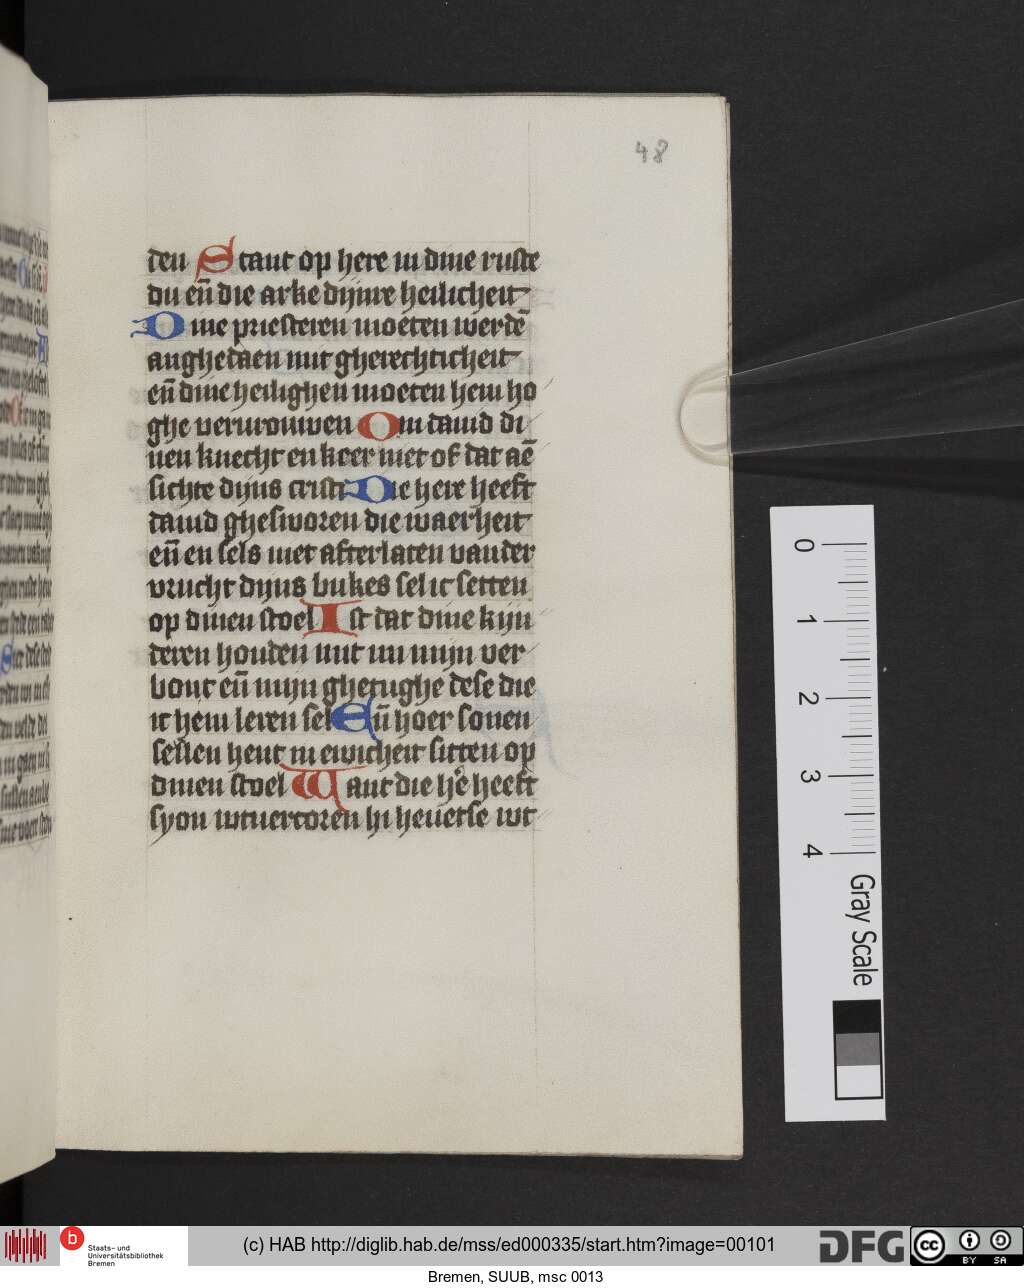 48
den Staut op here in dine ruste
du eñ die arke dijnre heilicheit
Dine priesteren moeten werdē
anghedaen mit gherechticheit
eñ dine heilighen moeten hem ho
ghe verwouwen Om dauid di
nen knecht en keer niet of dat aē
sichte dijns cristi Die here heeft
dauid ghesworen die waerheit
eñ en sels niet afterlaten vander
vrucht dijns bukes sel ic setten
op dinen stoel Ist dat dine kijn
deren houden mit mi mijn ver
bont eñ mijn ghetughe dese die
ic hem leren sel Eñ hoer sonen
sellen hent in ewicheit sitten op
dinen stoel Want die hē heeft
syon wtuercoren hi heuetse wt
0
1
2
3
4
Gray Scale
b
Staats- und
Universitätsbibliothek
Bremen
(c) HAB http://diglib.hab.de/mss/ed000335/start.htm?image=00101
DFG
cc
BY SA
Bremen, SUUB, msc 0013